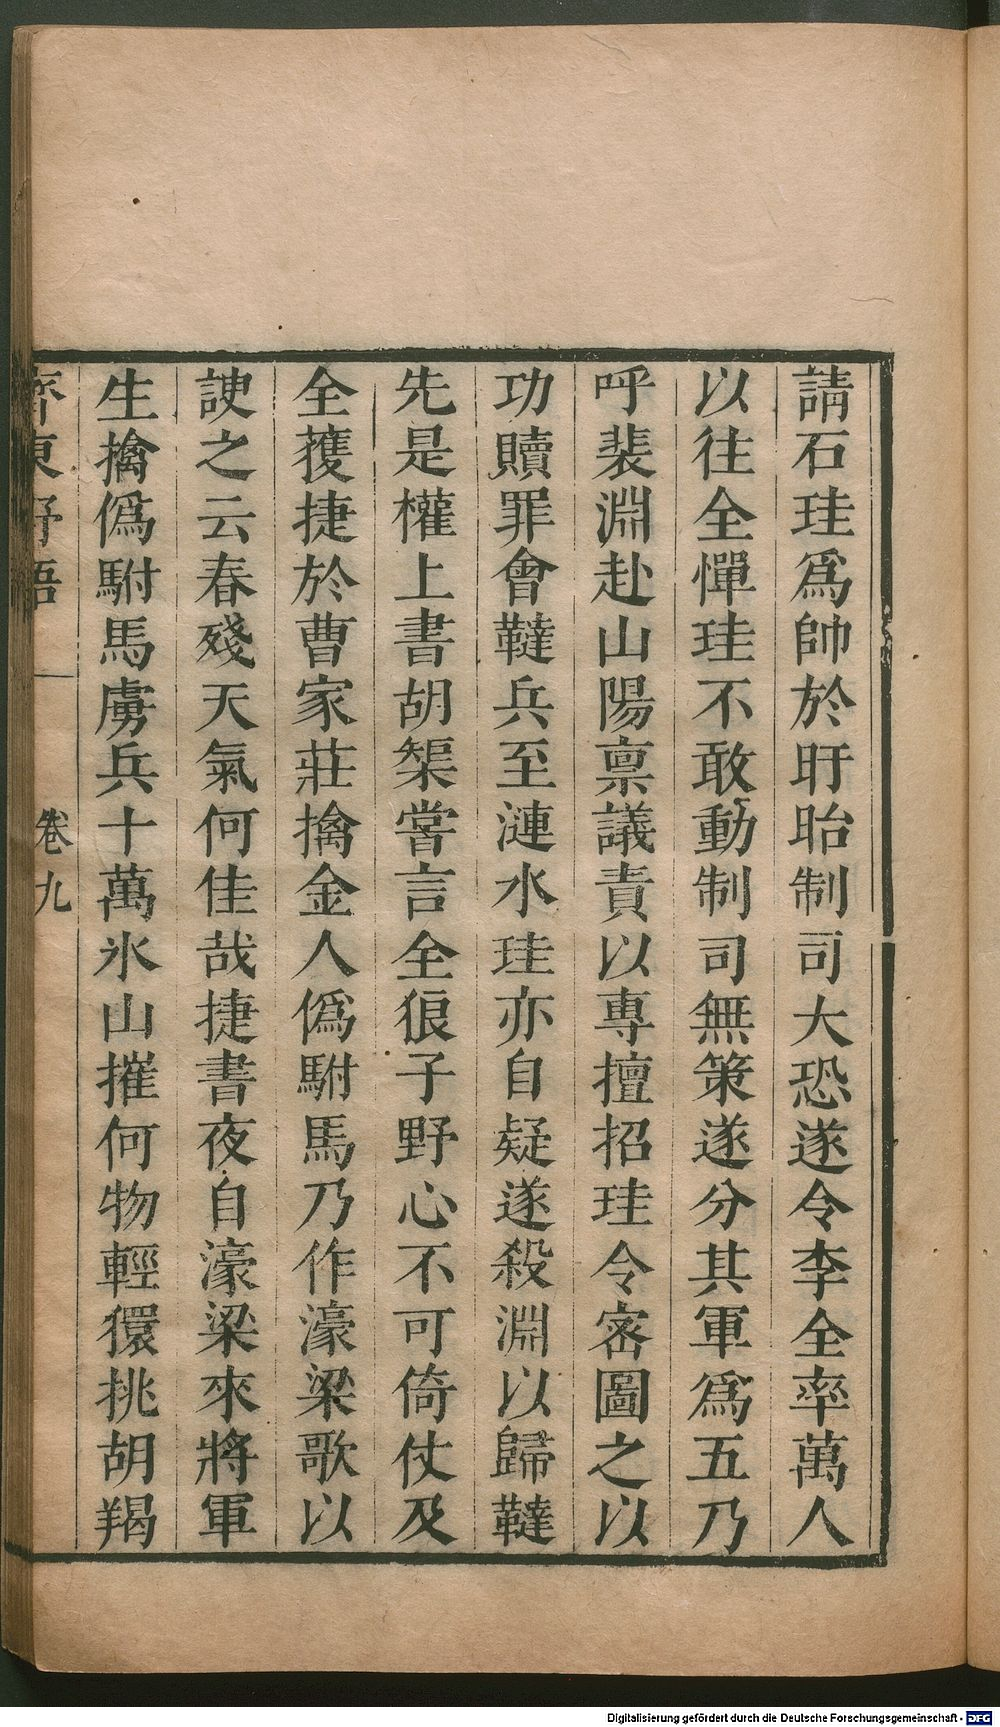 請石珪爲帥於盱眙制司大恐遂令李全率萬人
以往全憚珪不敢動制司無策遂分其軍爲五乃
呼裴淵赴山陽禀議責以專擅招珪令密圖之以
功贖罪會韃兵至漣水珪亦自疑遂殺淵以歸韃
先是權上書胡榘嘗言全狼子野心不可倚仗及
全䕶捷於曹家莊擒金人僞駙馬乃作濠梁歌以
諛之云春殘天氣何佳哉捷書夜自濠梁來將軍
生擒僞駙馬虜兵十萬氷山摧何物輕獧挑胡羯
齊東野語
卷九
Digitalisierung gefördert durch die Deutsche Forschungsgemeinschaft - DFG